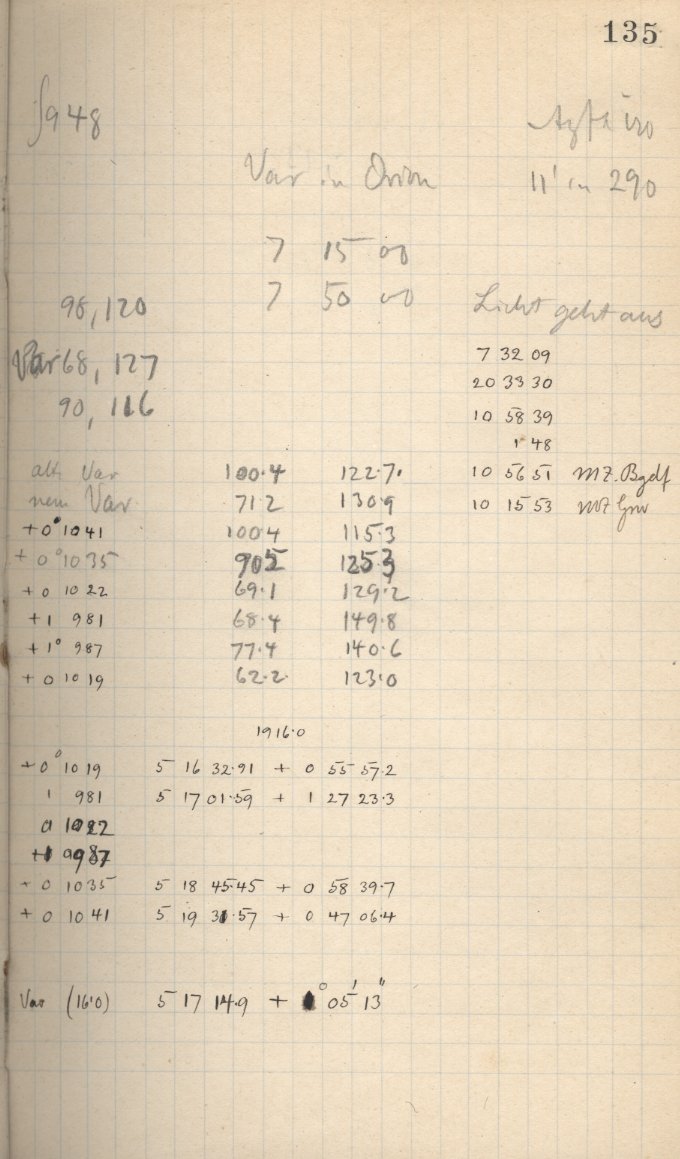 135
948
Var in Orion
11' in 290
7 15 00
7 50 00
98, 120
Licht geht aus
Var 68, 127
90, 116
7 32 09
20 33 30
10 58 39
1 48
alt. Var 100.4 122.7
10 56 51 MZ. Bgdf
neu Var 71.2 130.9
10 15 53 MZ Grw
+0° 1041 100.4 115.3
+0° 1035 90.5 125.3
+0 1022 69.1 129.2
+1 981 68.4 149.8
+1° 987 77.4 140.6
+0 1019 62.2 123.0
1916.0
+0° 1019 5 16 32.91 + 0 55 57.2
1 981 5 17 01.59 + 1 27 23.3
0 1022
+1 987
+0 1035 5 18 45.45 + 0 58 39.7
+0 1041 5 19 31.57 + 0 47 06.4
Var (16.0) 5 17 14.9 + ° 05' 13"